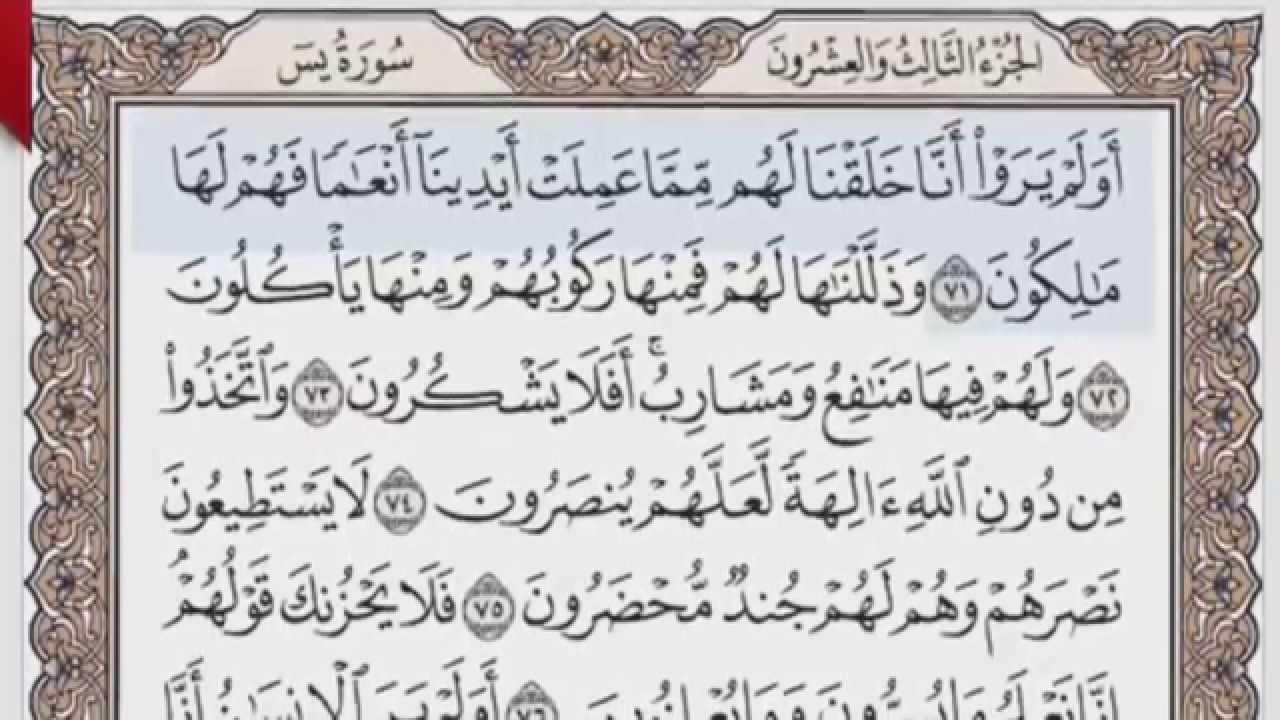 الجُزْءُ الثَّالِثُ وَالعِشْرُونَ
سُورَةُ يسٓ
أَوَلَمْ يَرَوْا۟ أَنَّا خَلَقْنَا لَهُم مِّمَّا عَمِلَتْ أَيْدِينَآ أَنْعَٰمًا فَهُمْ لَهَا
مَٰلِكُونَ ٧١ وَذَلَّلْنَٰهَا لَهُمْ فَمِنْهَا رَكُوبُهُمْ وَمِنْهَا يَأْكُلُونَ
٧٢ وَلَهُمْ فِيهَا مَنَٰفِعُ وَمَشَارِبُ ۚ أَفَلَا يَشْكُرُونَ ٧٣ وَٱتَّخَذُوا۟
مِن دُونِ ٱللَّهِ ءَالِهَةً لَّعَلَّهُمْ يُنصَرُونَ ٧٤ لَا يَسْتَطِيعُونَ
نَصْرَهُمْ وَهُمْ لَهُمْ جُندٌ مُّحْضَرُونَ ٧٥ فَلَا يَحْزُنكَ قَوْلُهُمْ ۘ
إِنَّا نَعْلَمُ مَا يُسِرُّونَ وَمَا يُعْلِنُونَ ٧٦ أَوَلَمْ يَرَ ٱلْإِنسَٰنُ أَنَّا